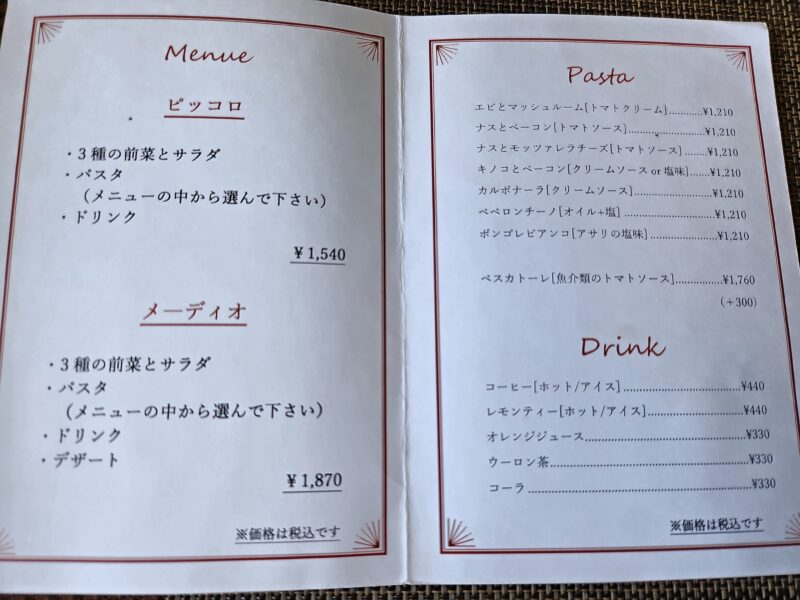 Menue
ピッコロ
・3種の前菜とサラダ
・パスタ
（メニューの中から選んで下さい）
・ドリンク
¥1,540
メーディオ
・3種の前菜とサラダ
・パスタ
（メニューの中から選んで下さい）
・ドリンク
・デザート
¥1,870
※価格は税込です
Pasta
エビとマッシュルーム[トマトクリーム]...........¥1,210
ナスとベーコン[トマトソース]........................¥1,210
ナスとモッツァレラチーズ[トマトソース].......¥1,210
キノコとベーコン[クリームソース or 塩味]......¥1,210
カルボナーラ[クリームソース]........................¥1,210
ペペロンチーノ[オイル+塩]..........................¥1,210
ボンゴレビアンコ[アサリの塩味]...................¥1,210
ペスカトーレ[魚介類のトマトソース]...............¥1,760
（＋300）
Drink
コーヒー[ホット/アイス]..............................¥440
レモンティー[ホット/アイス]........................¥440
オレンジジュース.........................................¥330
ウーロン茶..................................................¥330
コーラ.........................................................¥330
※価格は税込です